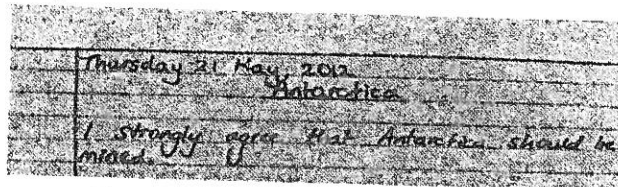 Thursday 21 May, 2012
Antarctica
I strongly agree that Antarctica should be
mined.